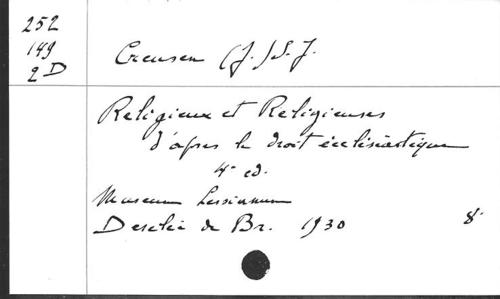 252
149
2D
Creusen (J.) S.J.
Religieux et Religieuses
d'après le droit ecclésiastique
4e ed.
Museum Lessianum
Desclée de Br. 1930 8°